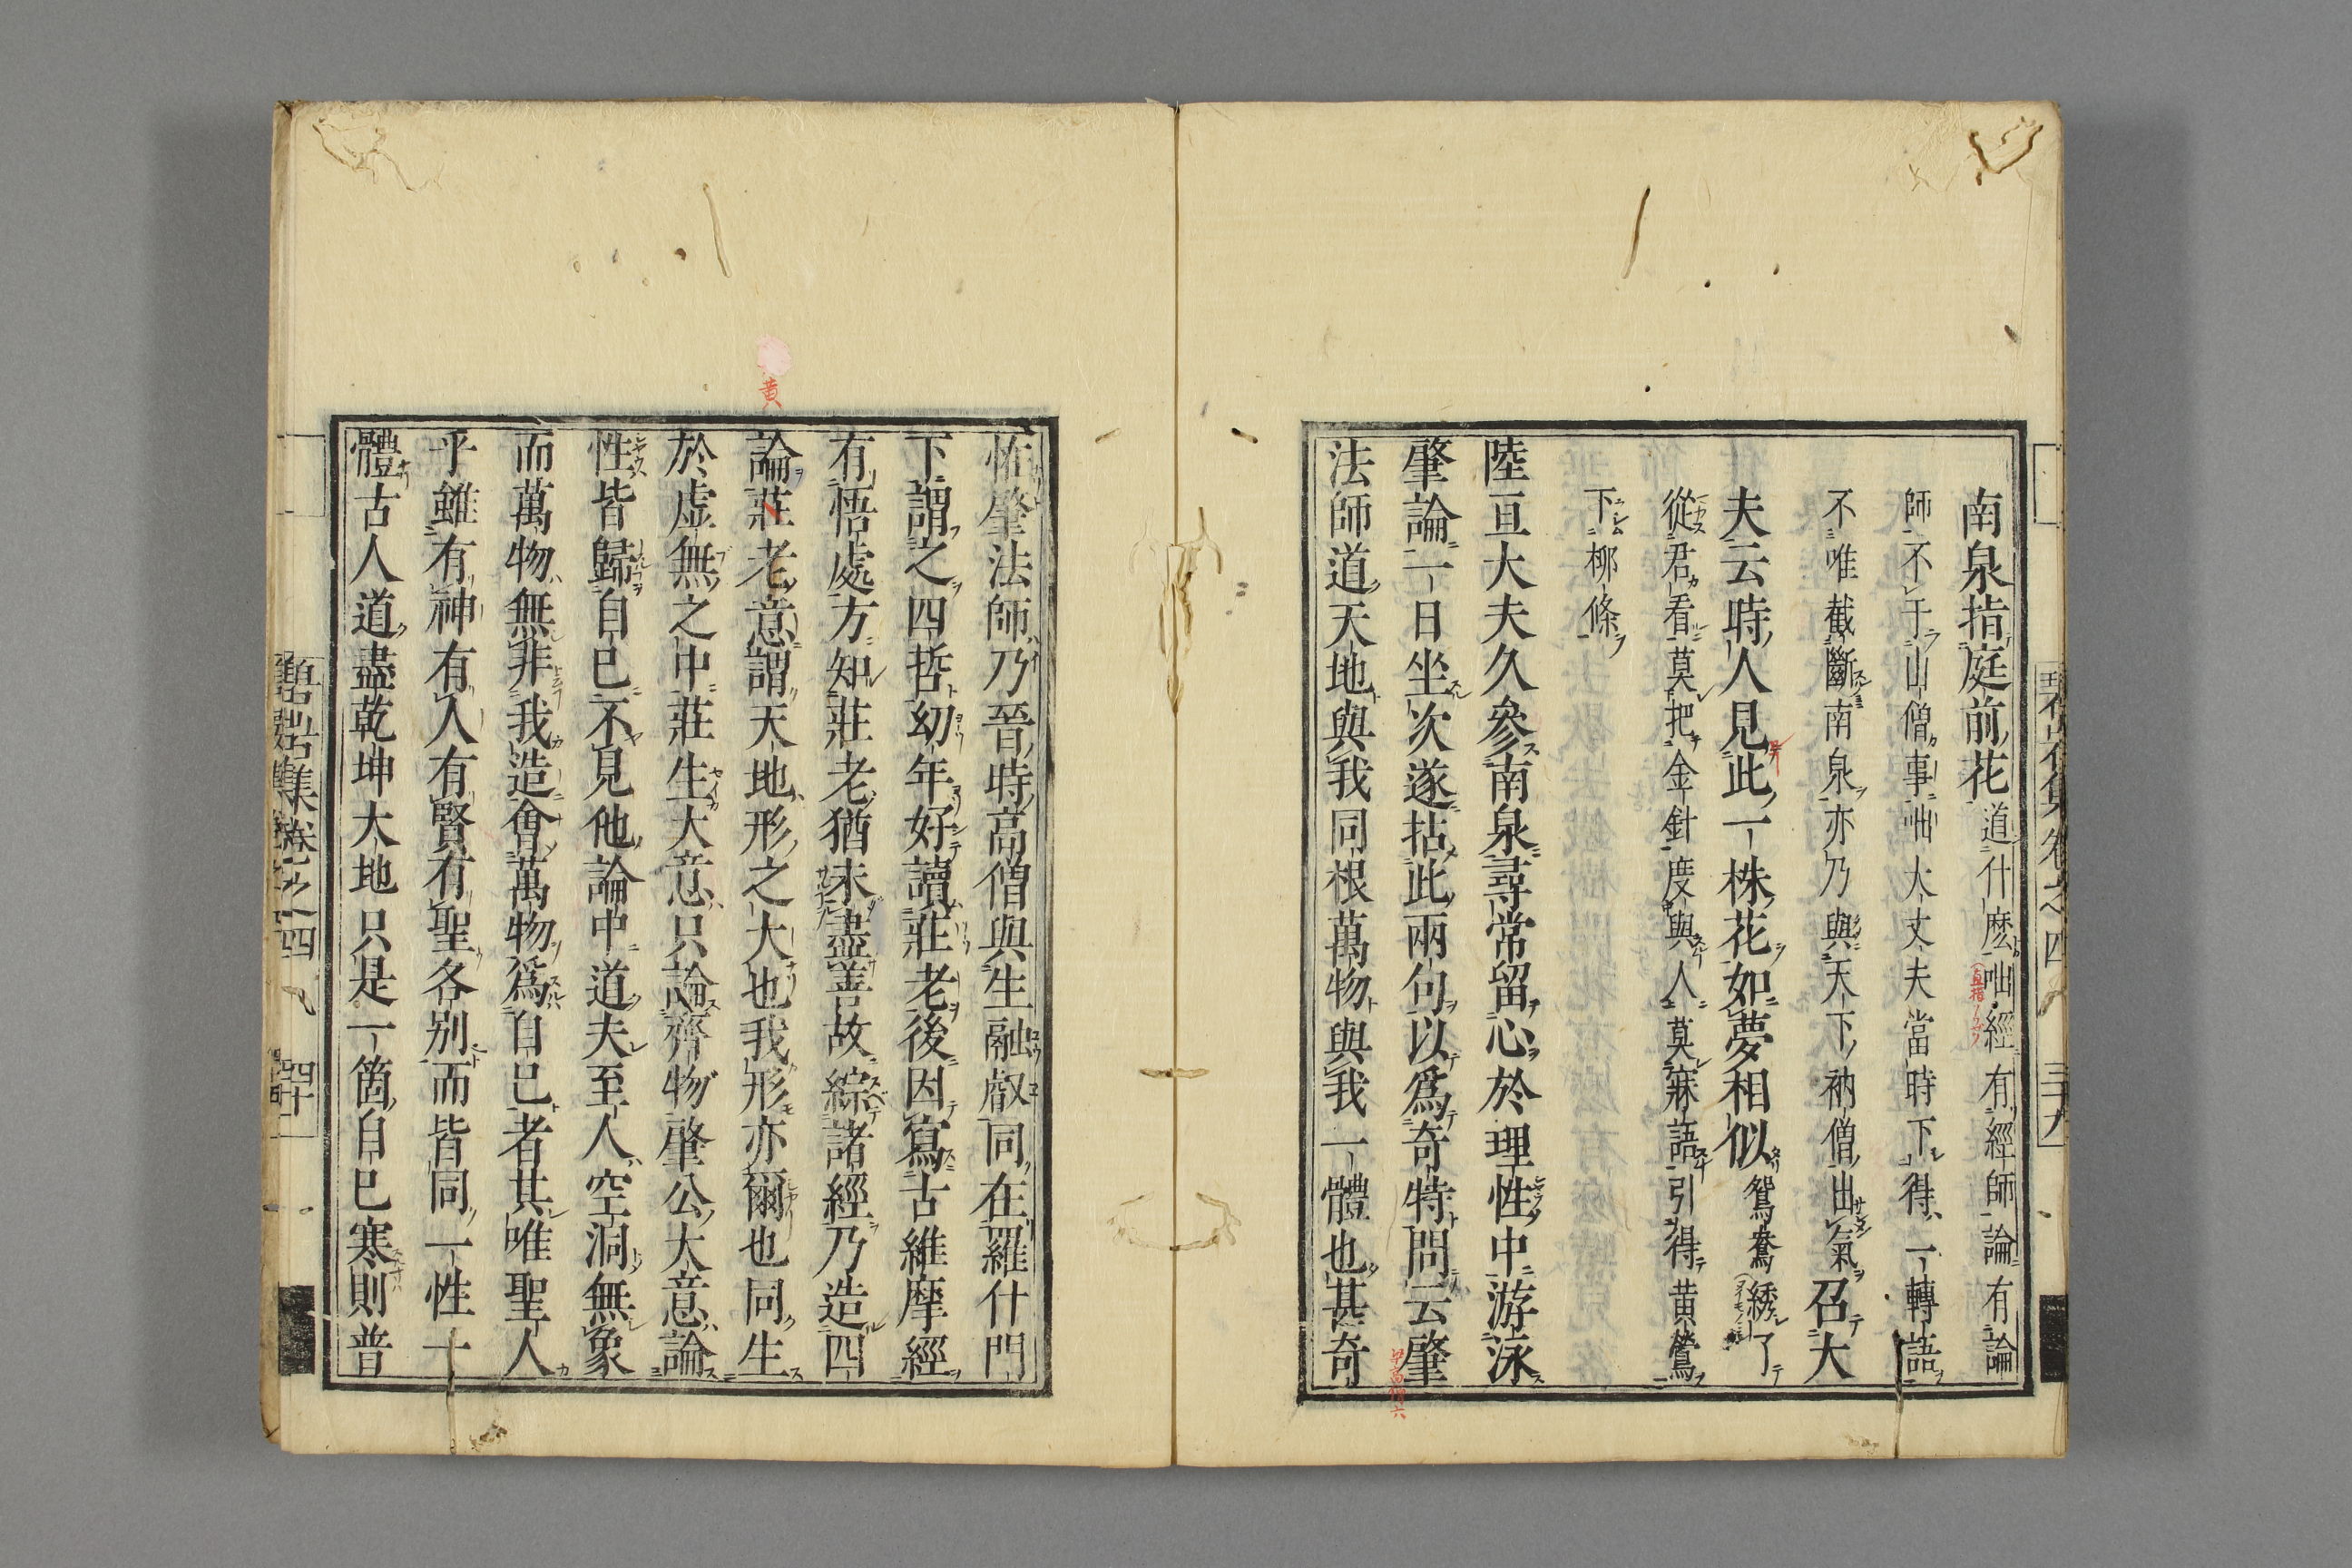 南泉指庭前花道什麽咄經有經師論有論
師不于山僧事咄大丈夫當時下得一轉語
不唯截斷南泉亦乃與天下衲僧出氣召大
夫云時人見此一株花如夢相似鴛鴦綉了
從君看莫把金針度與人莫寐語引得黄鶯
下柳條
陸亘大夫久參南泉尋常留心於理性中游泳
肇論一日坐次遂拈此兩句以爲奇特問云肇
法師道天地與我同根萬物與我一體也甚奇
恠肇法師乃晉時高僧與生融叡同在羅什門
下謂之四哲幼年好讀莊老後因寫古維摩經
有悟處方知莊老猶未盡善故綜諸經乃造四
黄
論莊老意謂天地形之大也我形亦爾也同生
於虚無之中莊生大意只論齊物肇公大意論
性皆歸自已不見他論中道夫至人空洞無象
而萬物無非我造會萬物爲自已者其唯聖人
乎雖有神有人有賢有聖各别而皆同一性一
體古人道盡乾坤大地只是一箇自已寒則普
碧岩集卷之四 四十